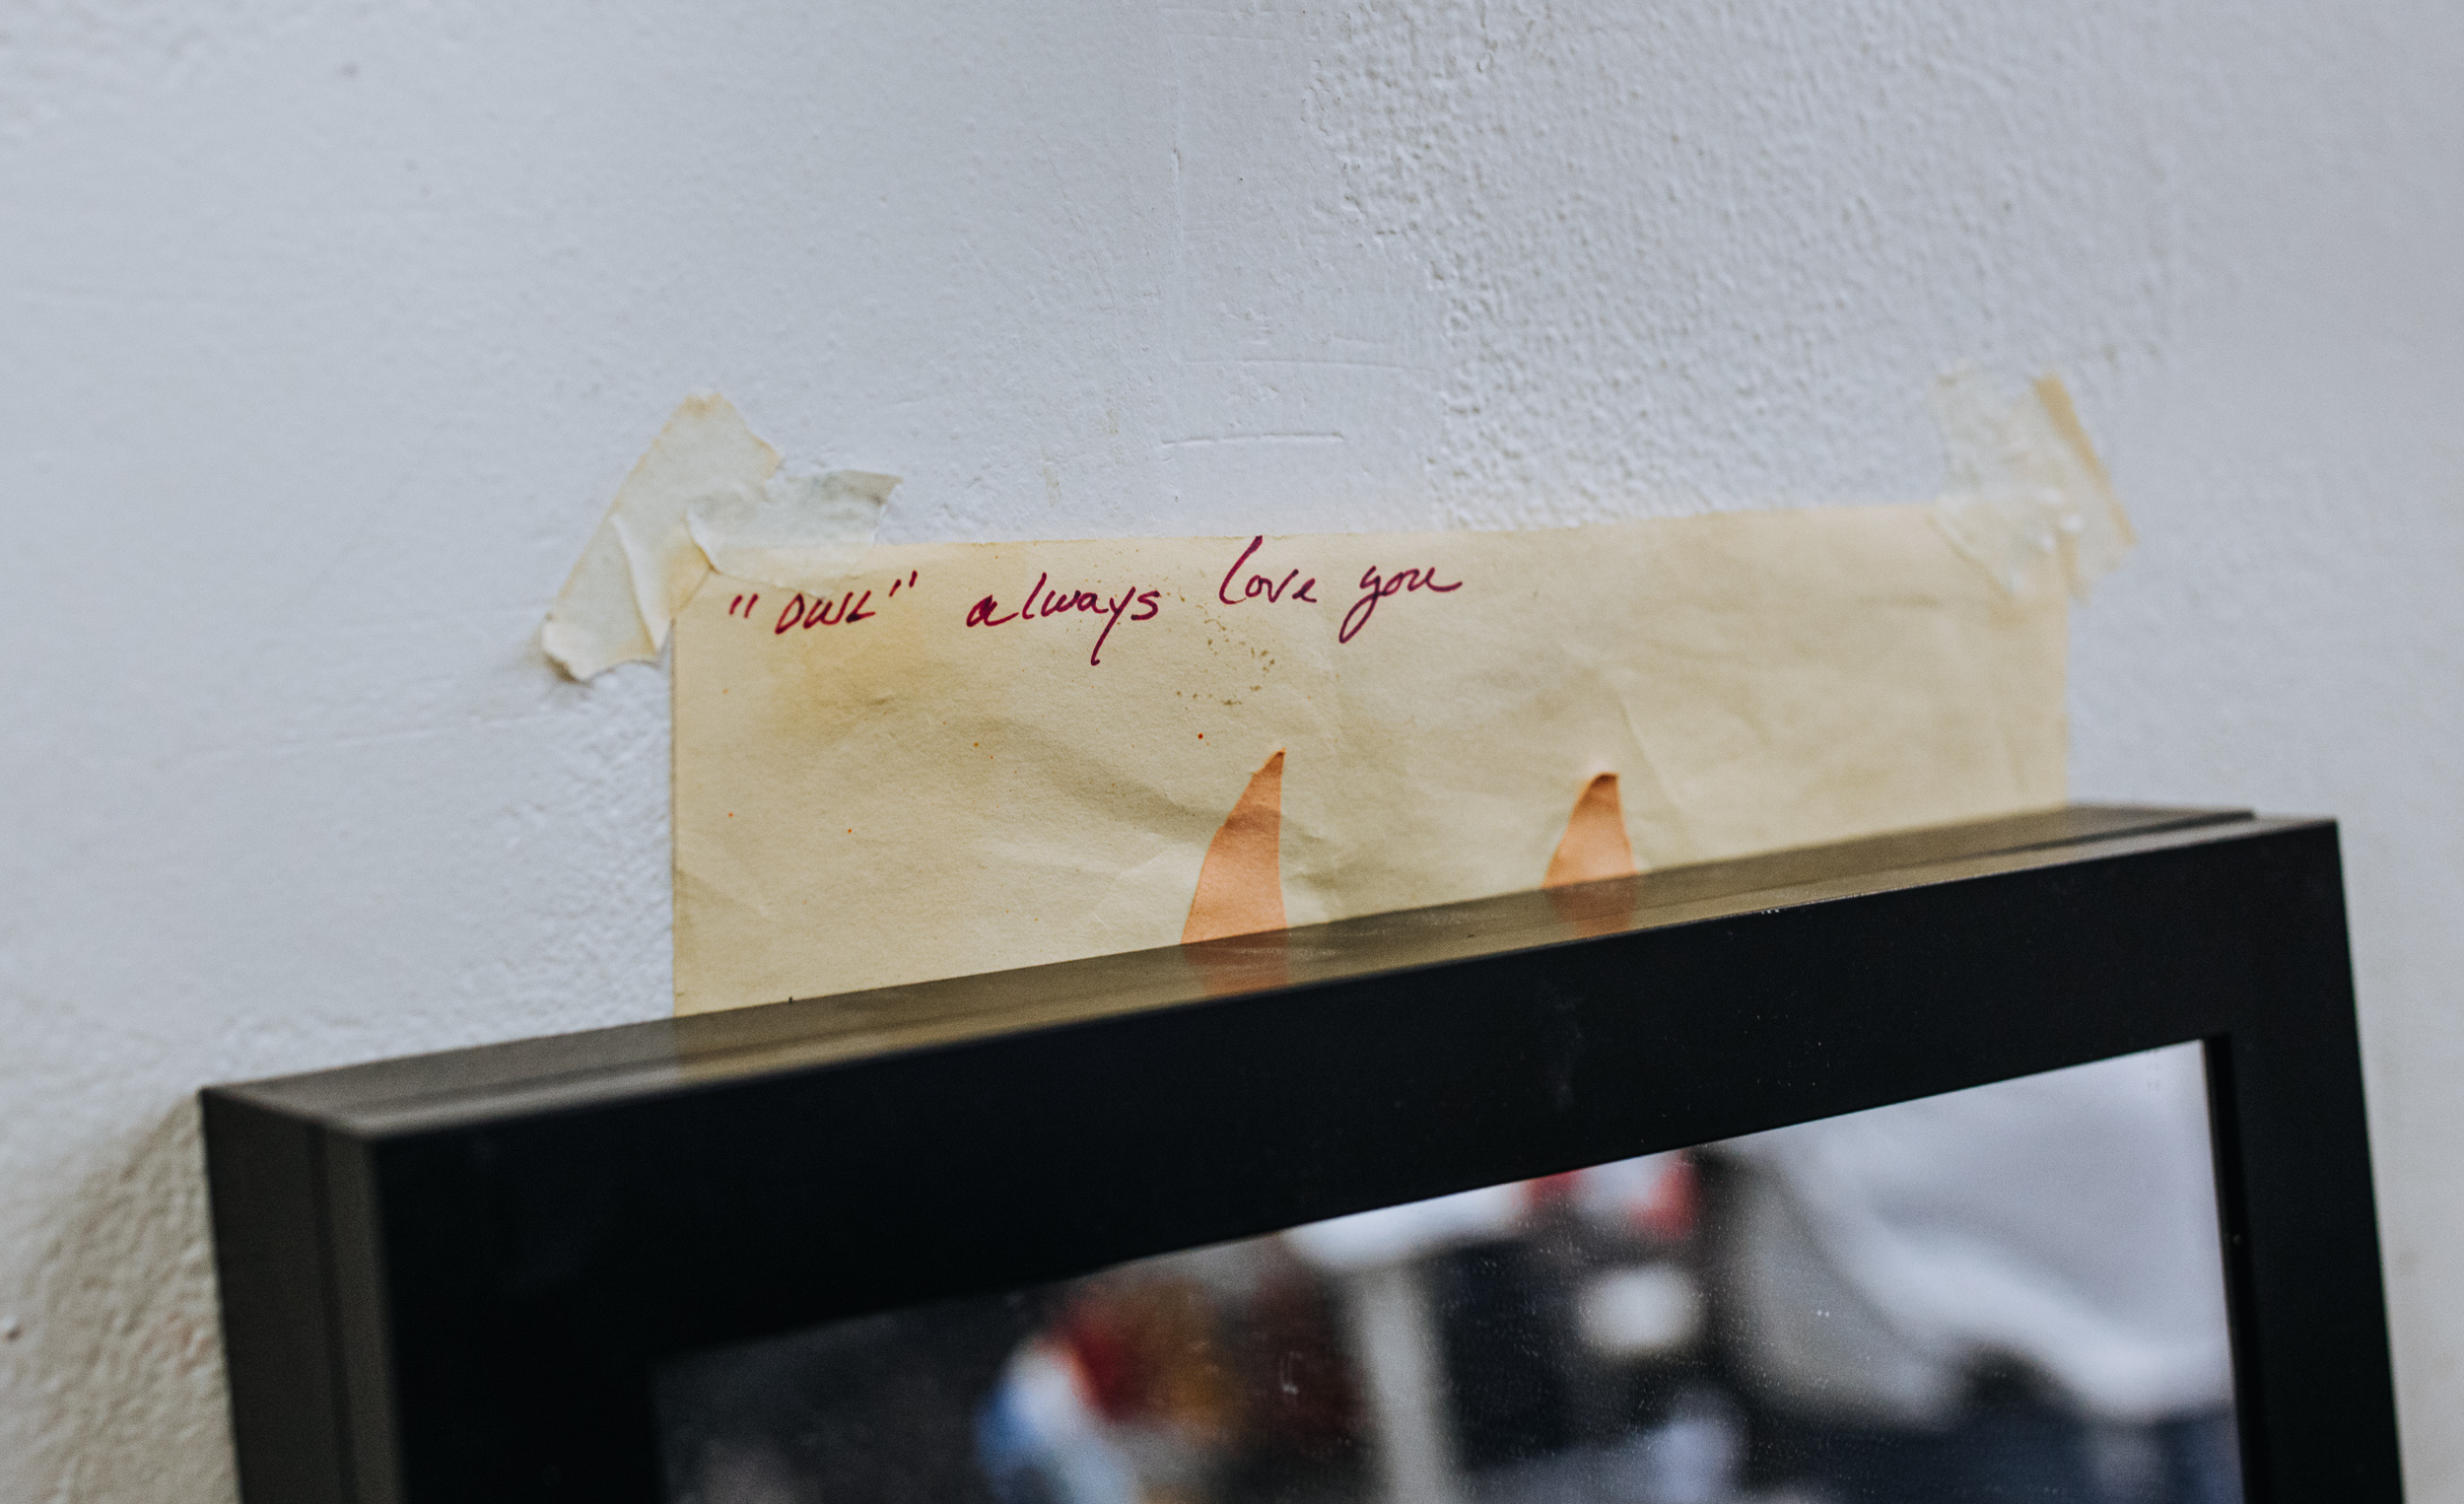 "OWL" always love you